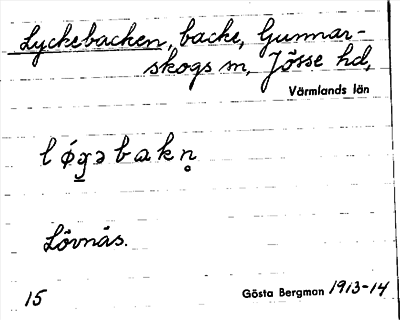 Lyckebacken, backe, Gunnar-
skogs sn, Jösse hd,
Värmlands län
lǿg̲əbakn̥
Lövnäs.
15 Gösta Bergman 1913-14